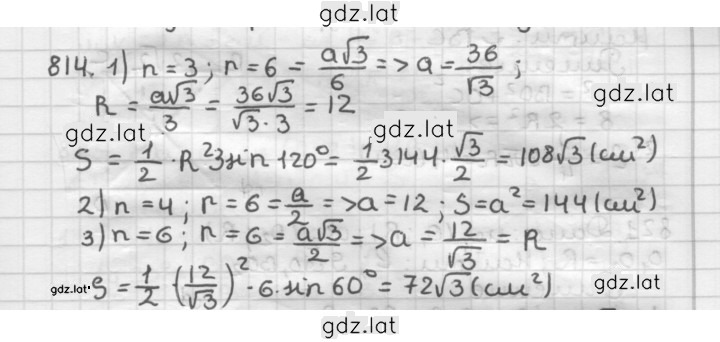 gdz.lat
814. 1) n = 3 ; r = 6 = a√3/6 => a = 36/√3 ;
gdz.lat
R = a√3/3 = 36√3/√3·3 = 12
gdz.lat gdz.lat
S = 1/2 · R²3sin 120° = 1/2 3144 · √3/2 = 108√3 (см²)
2) n = 4 ; r = 6 = a/2 => a = 12 ; S = a² = 144 (см²)
3) n = 6 ; r = 6 = a√3/2 => a = 12/√3 = R
gdz.lat S = 1/2 · (12/√3)² · 6 · sin 60° = 72√3 (см²) gdz.lat
gdz.lat